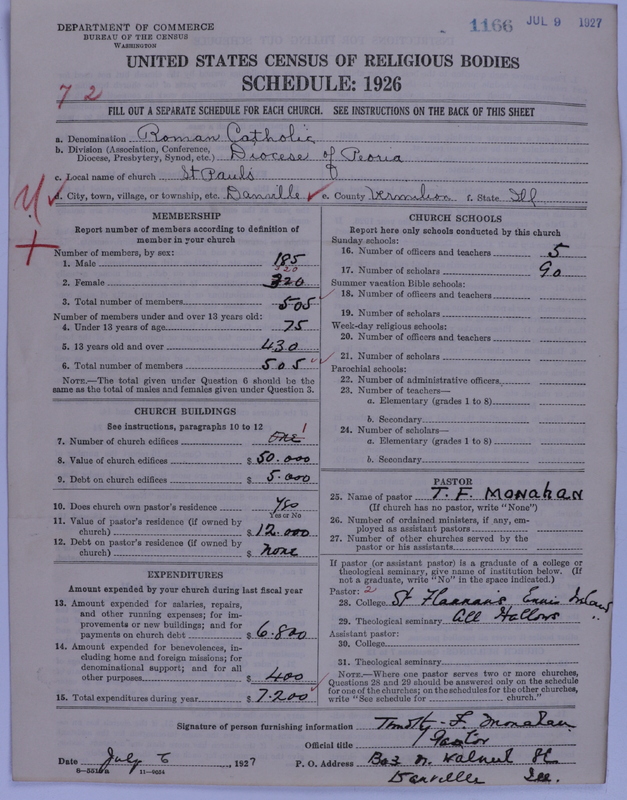 DEPARTMENT OF COMMERCE
BUREAU OF THE CENSUS
WASHINGTON
1166 JUL 9 1927
UNITED STATES CENSUS OF RELIGIOUS BODIES
SCHEDULE: 1926
72
FILL OUT A SEPARATE SCHEDULE FOR EACH CHURCH. SEE INSTRUCTIONS ON THE BACK OF THIS SHEET
a. Denomination Roman Catholic
b. Division (Association, Conference, Diocese, Presbytery, Synod, etc.) Diocese of Peoria
c. Local name of church St Pauls
d. City, town, village, or township, etc. Danville e. County Vermilion f. State Ill
MEMBERSHIP
Report number of members according to definition of
member in your church
Number of members, by sex:
1. Male 185
320
2. Female 320
3. Total number of members 505
Number of members under and over 13 years old:
4. Under 13 years of age 75
5. 13 years old and over 430
6. Total number of members 505
NOTE.—The total given under Question 6 should be
same as the total of males and females given under Question 3.
CHURCH BUILDINGS
See instructions, paragraphs 10 to 12
7. Number of church edifices One 1
8. Value of church edifices $ 50.000
9. Debt on church edifices $ 5.000
10. Does church own pastor's residence Yes
Yes or No
11. Value of pastor's residence (if owned by
church) $ 12.000
12. Debt on pastor's residence (if owned by
church) $ none
EXPENDITURES
Amount expended by your church during last fiscal year
13. Amount expended for salaries, repairs,
and other running expenses; for im-
provements or new buildings; and for
payments on church debt $ 6.800
14. Amount expended for benevolences, in-
cluding home and foreign missions; for
denominational support; and for all
other purposes $ 400
15. Total expenditures during year $ 7.200
CHURCH SCHOOLS
Report here only schools conducted by this church
Sunday schools:
16. Number of officers and teachers 5
17. Number of scholars 90
Summer vacation Bible schools:
18. Number of officers and teachers
19. Number of scholars
Week-day religious schools:
20. Number of officers and teachers
21. Number of scholars
Parochial schools:
22. Number of administrative officers
23. Number of teachers—
a. Elementary (grades 1 to 8)
b. Secondary
24. Number of scholars—
a. Elementary (grades 1 to 8)
b. Secondary
PASTOR
25. Name of pastor T. F. Monahan
(If church has no pastor, write "None")
26. Number of ordained ministers, if any, em-
ployed as assistant pastors
27. Number of other churches served by the
pastor or his assistants
If pastor (or assistant pastor) is a graduate of a college or
theological seminary, give name of institution below. (If
not a graduate, write "No" in the space indicated.)
Pastor: 2
28. College St Flannan's Ennis Ireland
29. Theological seminary All Hallows "
Assistant pastor:
30. College
31. Theological seminary
NOTE.—Where one pastor serves two or more churches,
Questions 28 and 29 should be answered only on the schedule
for one of the churches; on the schedules for the other churches,
write "See schedule for church."
Signature of person furnishing information Timothy F. Monahan
Official title Pastor
Date July 6, 1927 P. O. Address 803 N. Walnut St
8—5510a 11—9054 Danville Ill.